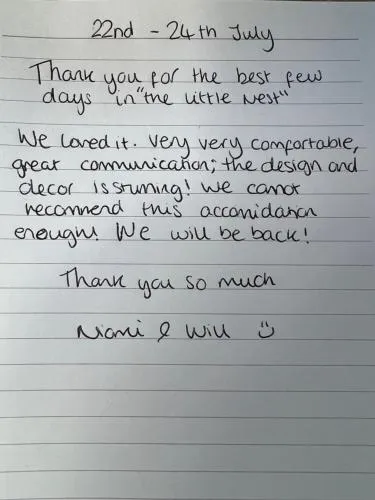 22nd - 24th July
Thank you for the best few
days in "the little Nest"
We loved it. Very very comfortable,
great communication; the design and
decor is stunning! We cannot
recommend this accomidation
enough! We will be back!
Thank you so much
Niomi & Will